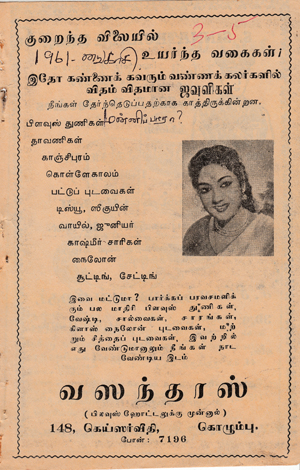 குறைந்த விலையில்
3-5
1961 உயர்ந்த வகைகள்!
இதோ கண்ணைக் கவரும் வண்ணக் கலர்களில்
விதம் விதமான ஜவுளிகள்
நீங்கள் தேர்ந்தெடுப்பதற்காக காத்திருக்கின்றன.
பிளவுஸ் துணிகள்
தாவணிகள்
காஞ்சிபுரம்
கொள்ளேகாலம்
பட்டுப் புடவைகள்
டிஸ்யூ, ஸீகுயின்
வாயில், ஜுனியர்
காஷ்மீர் சாரிகள்
நைலோன்
சூட்டிங், சேட்டிங்
இவை மட்டுமா? பார்க்கப் பரவசமளிக்
கும் பல மாதிரி பிளவுஸ் துணிகள்,
வேஷ்டி, சால்வைகள், சாரங்கள்,
கிளாஸ் நைலோன் புடவைகள், மற்
றும் சித்தைப் புடவைகள், இவற்றில்
எது வேண்டுமானாலும் நீங்கள் நாட
வேண்டிய இடம்
வஸந்தாஸ்
(பிளவுஸ் ஹோட்டலுக்கு முன்னால்)
148, கெய்ஸர்வீதி, கொழும்பு.
போன்: 7196